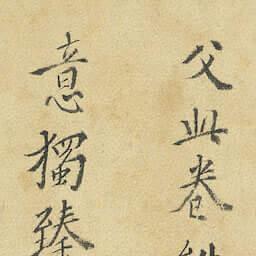 父此卷
意獨臻